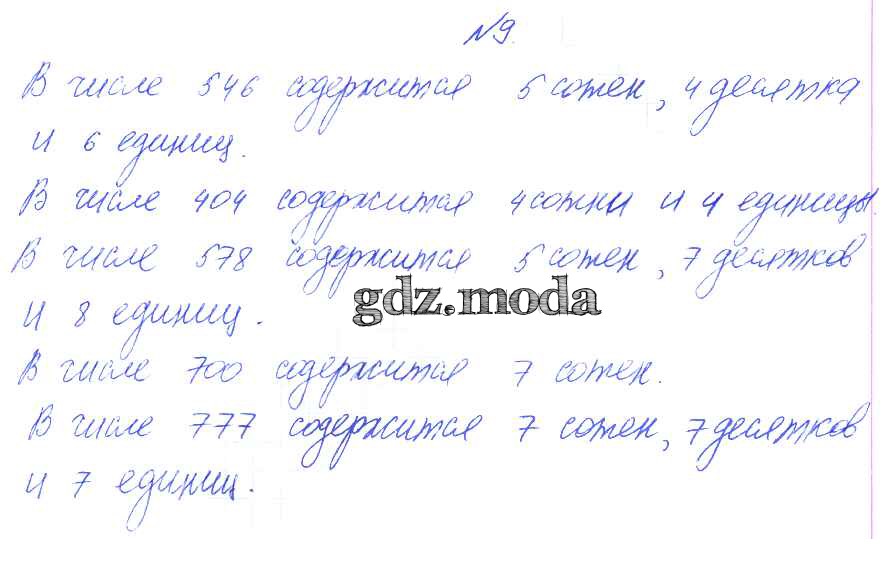 №9.
В числе 546 содержится 5 сотен, 4 десятка
и 6 единиц.
В числе 404 содержится 4 сотни и 4 единицы.
В числе 578 содержится 5 сотен, 7 десятков
gdz.moda
и 8 единиц.
В числе 700 содержится 7 сотен.
В числе 777 содержится 7 сотен, 7 десятков
и 7 единиц.